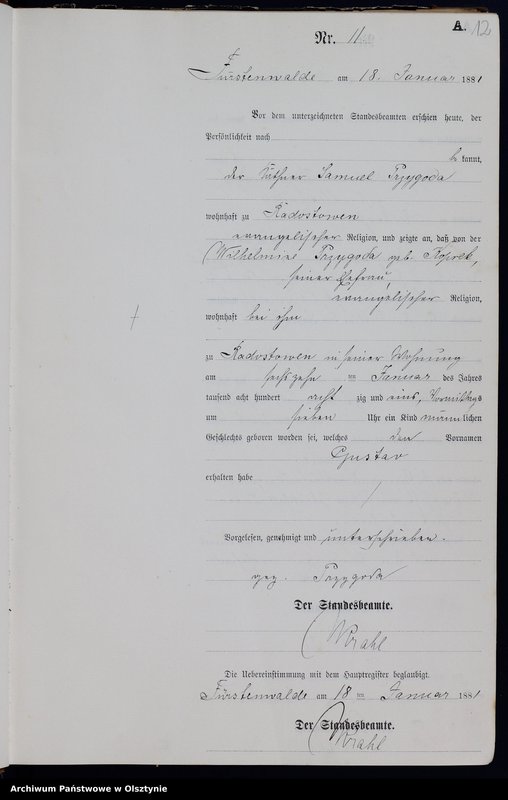 A. 12
Nr. 11
Fürstenwalde am 18. Januar 1881
Vor dem unterzeichneten Standesbeamten erschien heute, der
Persönlichkeit nach
be kannt,
der Käthner Samuel Przygoda
wohnhaft zu Radostowen
evangelischer Religion, und zeigte an, daß von der
Wilhelmine Przygoda geb. Koprek,
seiner Ehefrau,
evangelischer Religion,
wohnhaft bei ihm
zu Radostowen in seiner Wohnung
am sechszehn ten Januar des Jahres
tausend acht hundert acht zig und eins, Vormittags
um sieben Uhr ein Kind männlichen
Geschlechts geboren worden sei, welches den Vornamen
Gustav
erhalten habe
Vorgelesen, genehmigt und unterschrieben.
gez. Przygoda
Der Standesbeamte.
Krahl
Die Uebereinstimmung mit dem Hauptregister beglaubigt.
Fürstenwalde am 18 ten Januar 1881
Der Standesbeamte.
Krahl
Archiwum Państwowe w Olsztynie